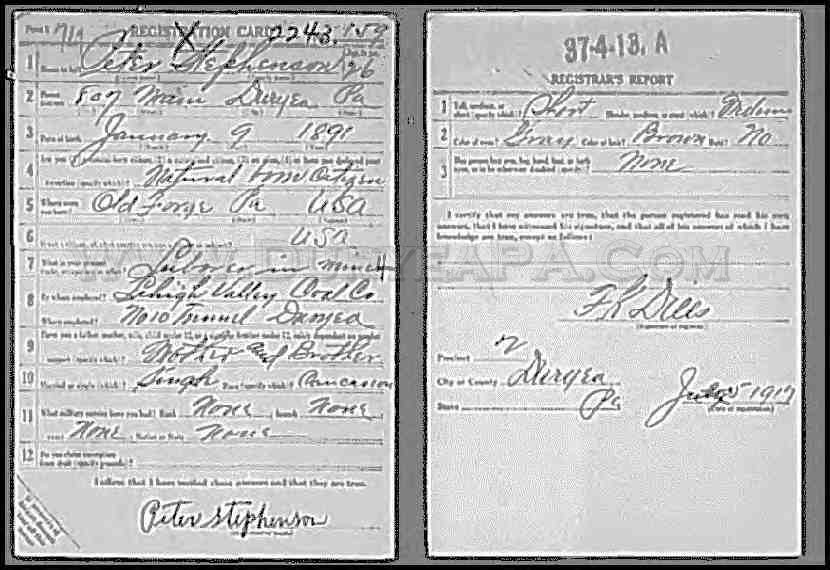 Form 1 711 REGISTRATION CARD 2243 No. 159
1 Name in full Peter Stephenson Age, in yrs. 26
2 Home address 807 Main Duryea Pa
3 Date of birth January 9 1891
4 Are you (1) a natural-born citizen, (2) a naturalized citizen, (3) an alien, (4) or have you declared your intention (specify which)? Natural born Citizen
5 Where were you born? Old Forge Pa USA
6 If not a citizen, of what country are you a citizen or subject? USA
7 What is your present trade, occupation, or office? Laborer in mine 4
8 By whom employed? Lehigh Valley Coal Co
Where employed? No 10 Tunnel Duryea
9 Have you a father, mother, wife, child under 12, or a sister or brother under 12, solely dependent on you for support (specify which)? Mother and Brother
10 Married or single (which)? Single Race (specify which)? Caucasian
11 What military service have you had? Rank None branch None
years None Nation or State None
12 Do you claim exemption from draft (specify grounds)?
I affirm that I have verified above answers and that they are true.
Peter Stephenson
37-4-13. A
REGISTRAR'S REPORT
1 Tall, medium, or short (specify which)? Short Slender, medium, or stout (which)? Medium
2 Color of eyes? Gray Color of hair? Brown Bald? No
3 Has person lost arm, leg, hand, foot, or both eyes, or is he otherwise disabled (specify)? None
I certify that my answers are true, that the person registered has read his own answers, that I have witnessed his signature, and that all of his answers of which I have knowledge are true, except as follows:
WWW.DURYEAPA.COM
(Signature of registrar)
Precinct 2
City or County Duryea
State Pa
July 5 1917
(Date of registration)